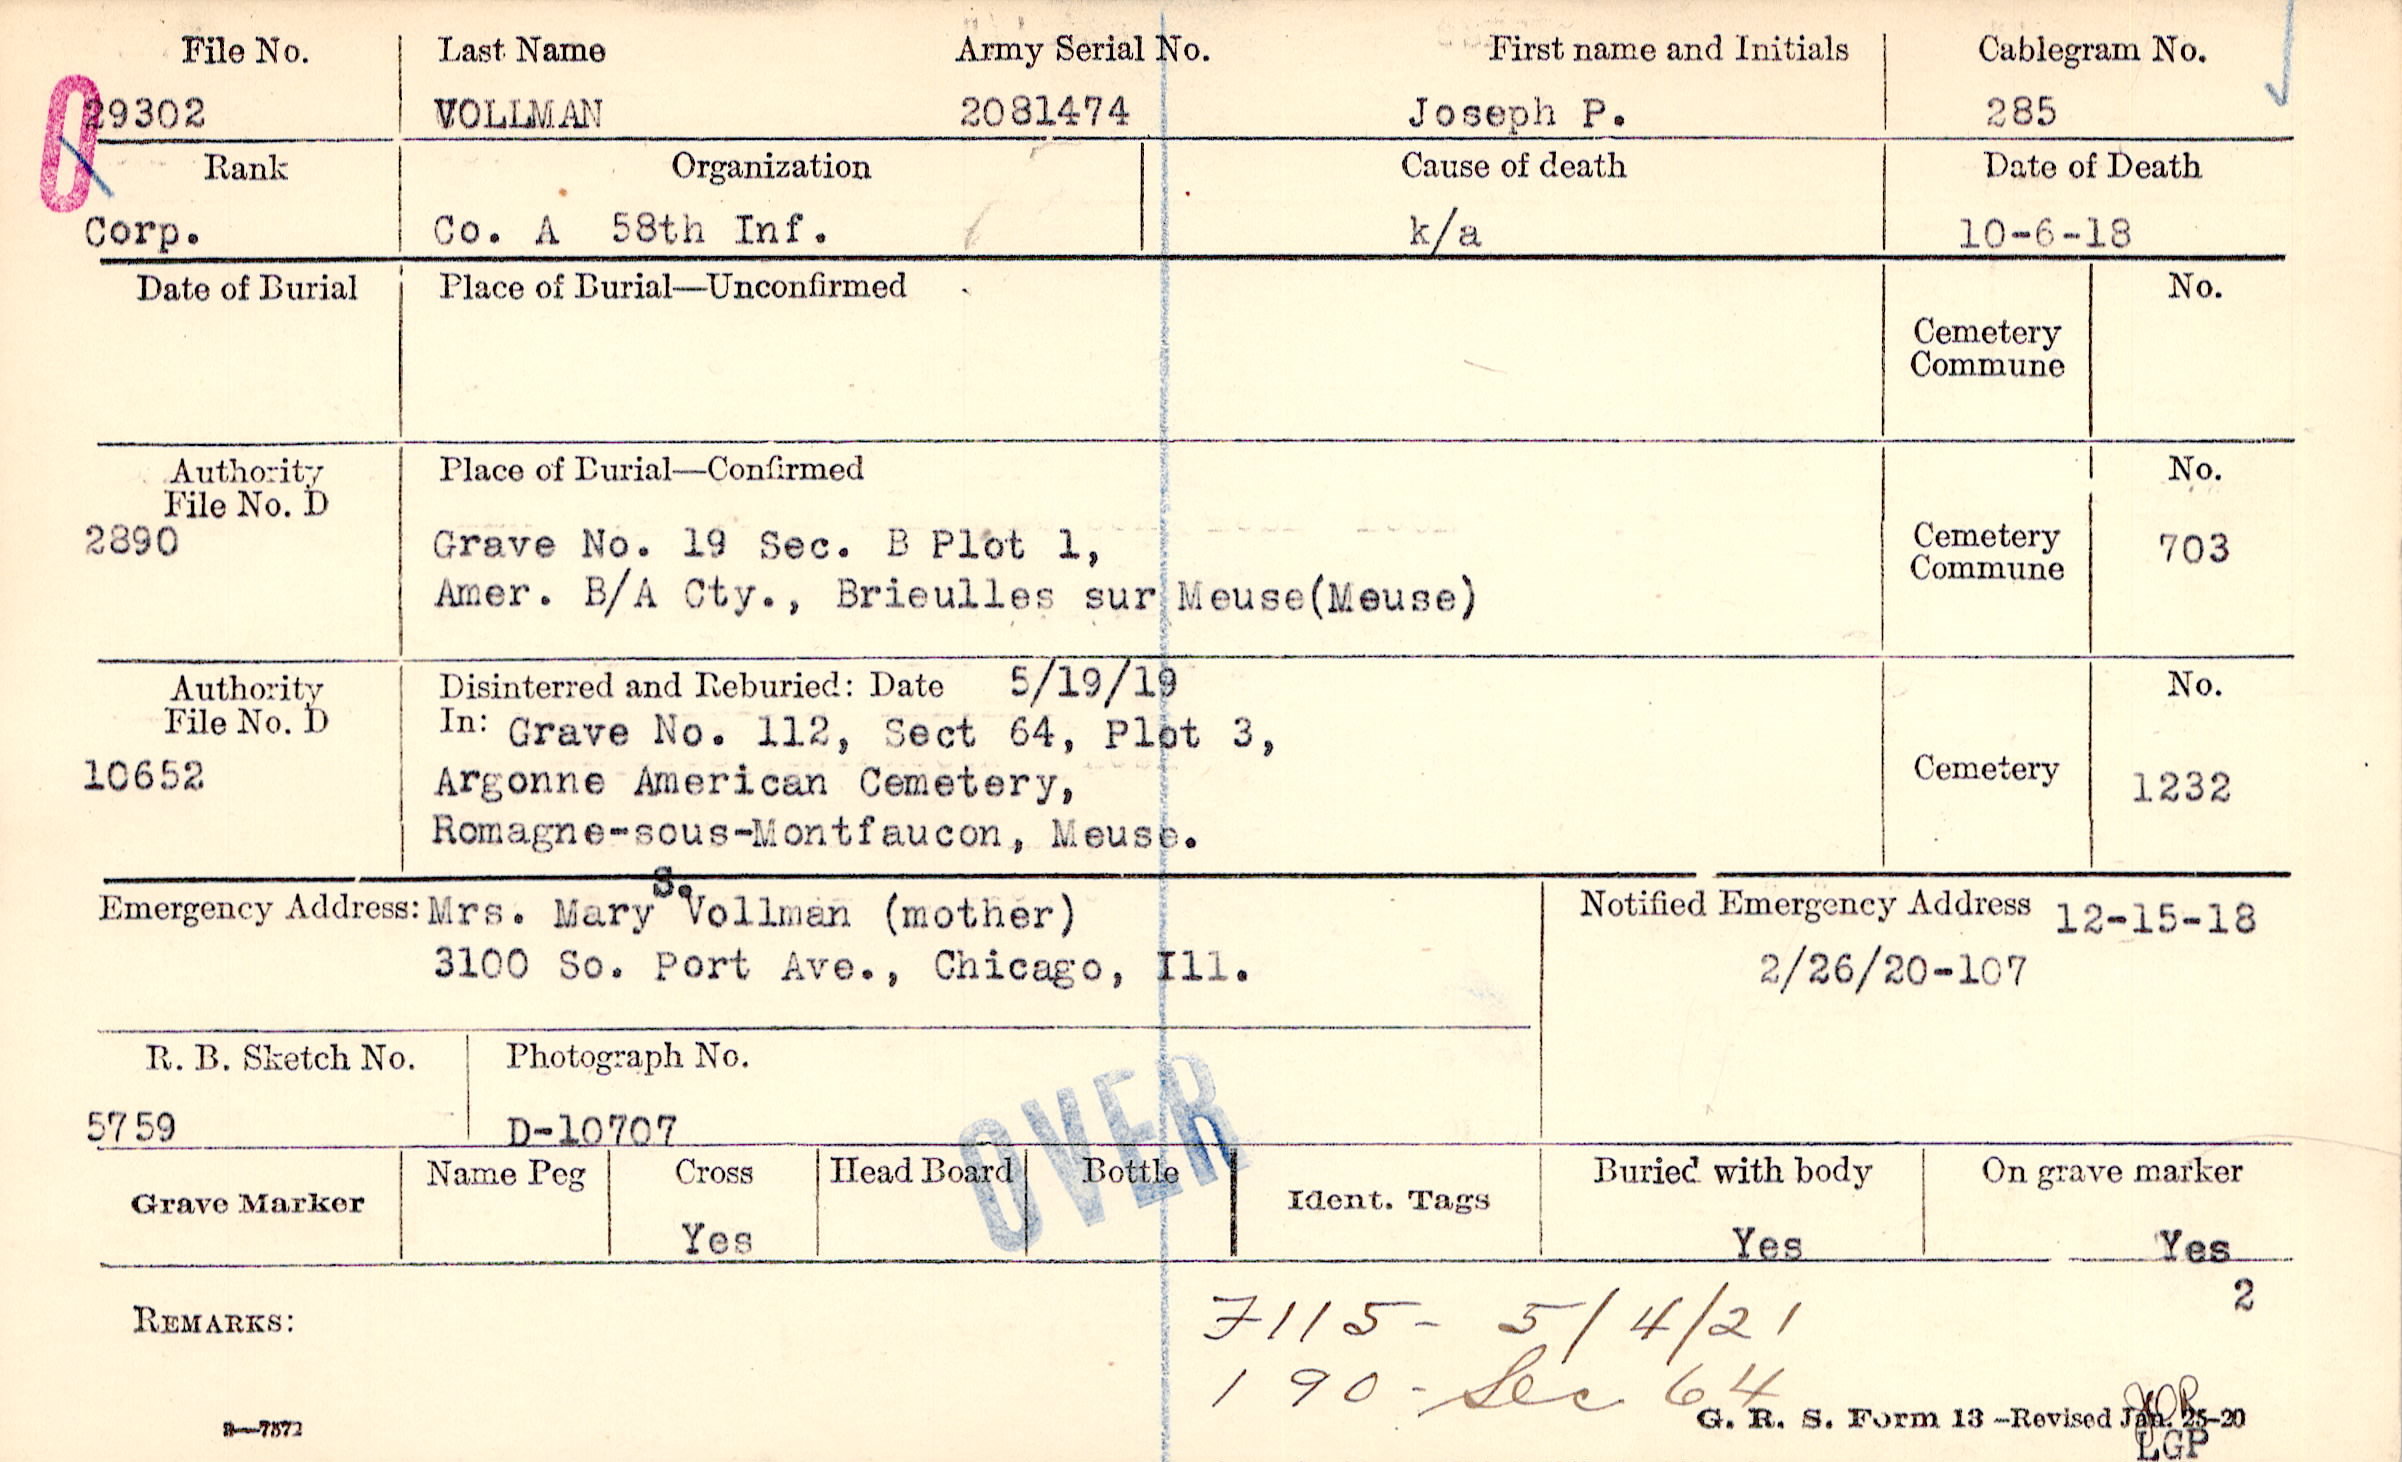 File No. Last Name Army Serial No. First name and Initials Cablegram No.
29302 VOLLMAN 2081474 Joseph P. 285
O
Rank Organization Cause of death Date of Death
Corp. Co. A 58th Inf. k/a 10-6-18
Date of Burial Place of Burial—Unconfirmed No.
Cemetery
Commune
Authority Place of Burial—Confirmed No.
File No. D
2890 Grave No. 19 Sec. B Plot 1, Cemetery 703
Commune
Amer. B/A Cty., Brieulles sur Meuse(Meuse)
Authority Disinterred and Reburied: Date 5/19/19 No.
File No. D In: Grave No. 112, Sect 64, Plot 3,
10652 Argonne American Cemetery, Cemetery 1232
Romagne-sous-Montfaucon, Meuse.
S.
Emergency Address: Mrs. Mary Vollman (mother) Notified Emergency Address 12-15-18
3100 So. Port Ave., Chicago, Ill. 2/26/20-107
R. B. Sketch No. Photograph No.
5759 D-10707
OVER
Grave Marker Name Peg Cross Head Board Bottle Ident. Tags Buried with body On grave marker
Yes Yes Yes
2
REMARKS: 7115- 5/4/21
190- Sec 64
3—7572 G. R. S. Form 13 -Revised Jan. 25-20
LGP